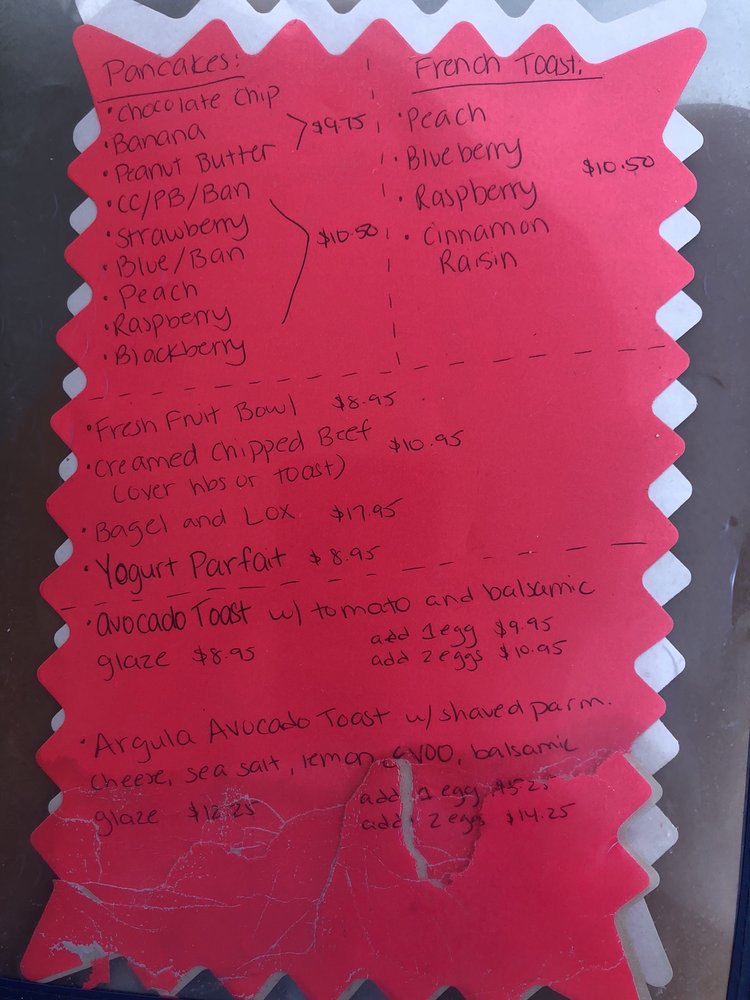 Pancakes:
• Chocolate Chip
• Banana
• Peanut Butter
$9.75
• CC/PB/Ban
• Strawberry
• Blue/Ban
• Peach
• Raspberry
• Blackberry
$10.50
French Toast:
• Peach
• Blueberry
• Raspberry
• Cinnamon
Raisin
$10.50
• Fresh Fruit Bowl $8.95
• Creamed Chipped Beef $10.95
(over hbs or toast)
• Bagel and Lox $17.95
• Yogurt Parfait $8.95
• Avocado Toast w/ tomato and balsamic
glaze $8.95
add 1 egg $9.95
add 2 eggs $10.95
• Argula Avocado Toast w/ shaved parm.
cheese, sea salt, lemon, EVOO, balsamic
glaze $12.25
add 1 egg
add 2 eggs $14.25